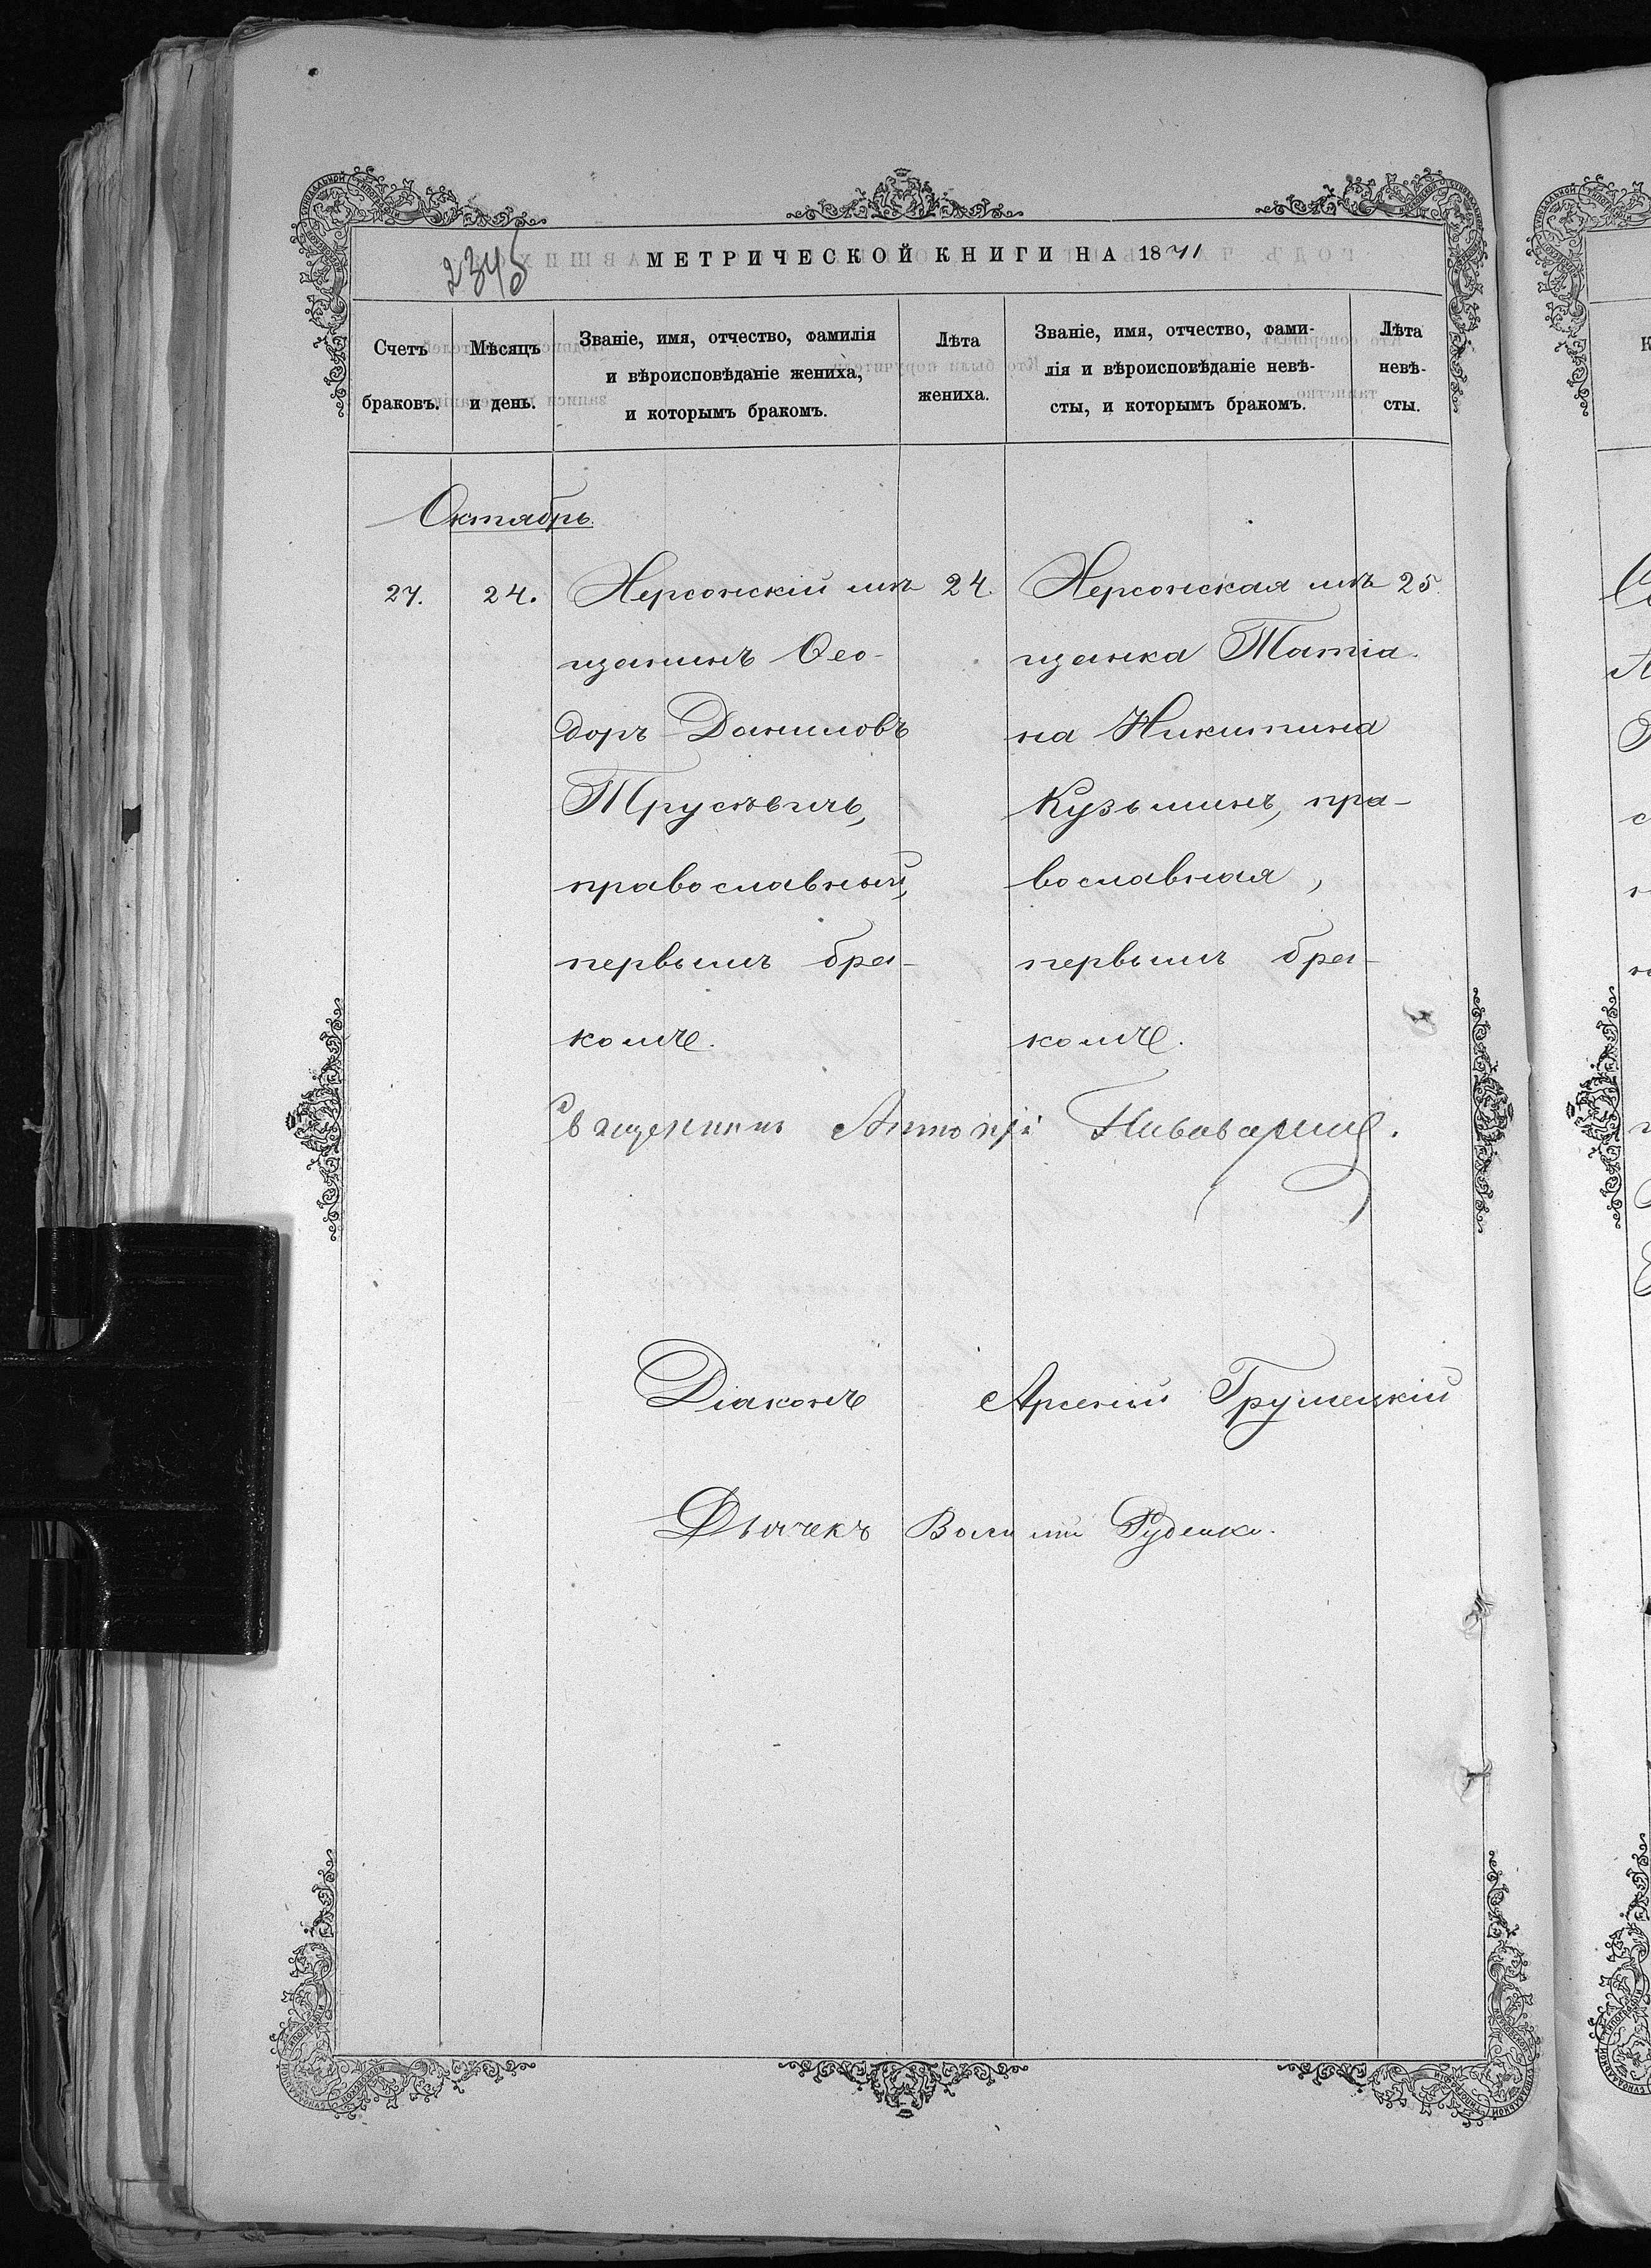 МЕТРИЧЕСКОЙ КНИГИ НА 1871
2345
Счетъ браковъ.
Мѣсяцъ и день.
Званіе, имя, отчество, фамилія
и вѣроисповѣданіе жениха,
и которымъ бракомъ.
Лѣта
жениха.
Званіе, имя, отчество, фами-
лія и вѣроисповѣданіе невѣ-
сты, и которымъ бракомъ.
Лѣта
невѣ-
сты.
Октябрь.
27.
24.
Херсонскій мѣ
щанинъ Ѳео-
доръ Даниловъ
Трусѣвичъ,
православный,
первымъ бра-
комъ.
24.
Херсонская мѣ
щанка Татіа
на Никитина
Кузьминъ, пра-
вославная,
первымъ бра-
комъ.
25.
Священникъ Антоній
Діаконъ Арсеній Грушецкій
Дьячекъ Василій Руденко.